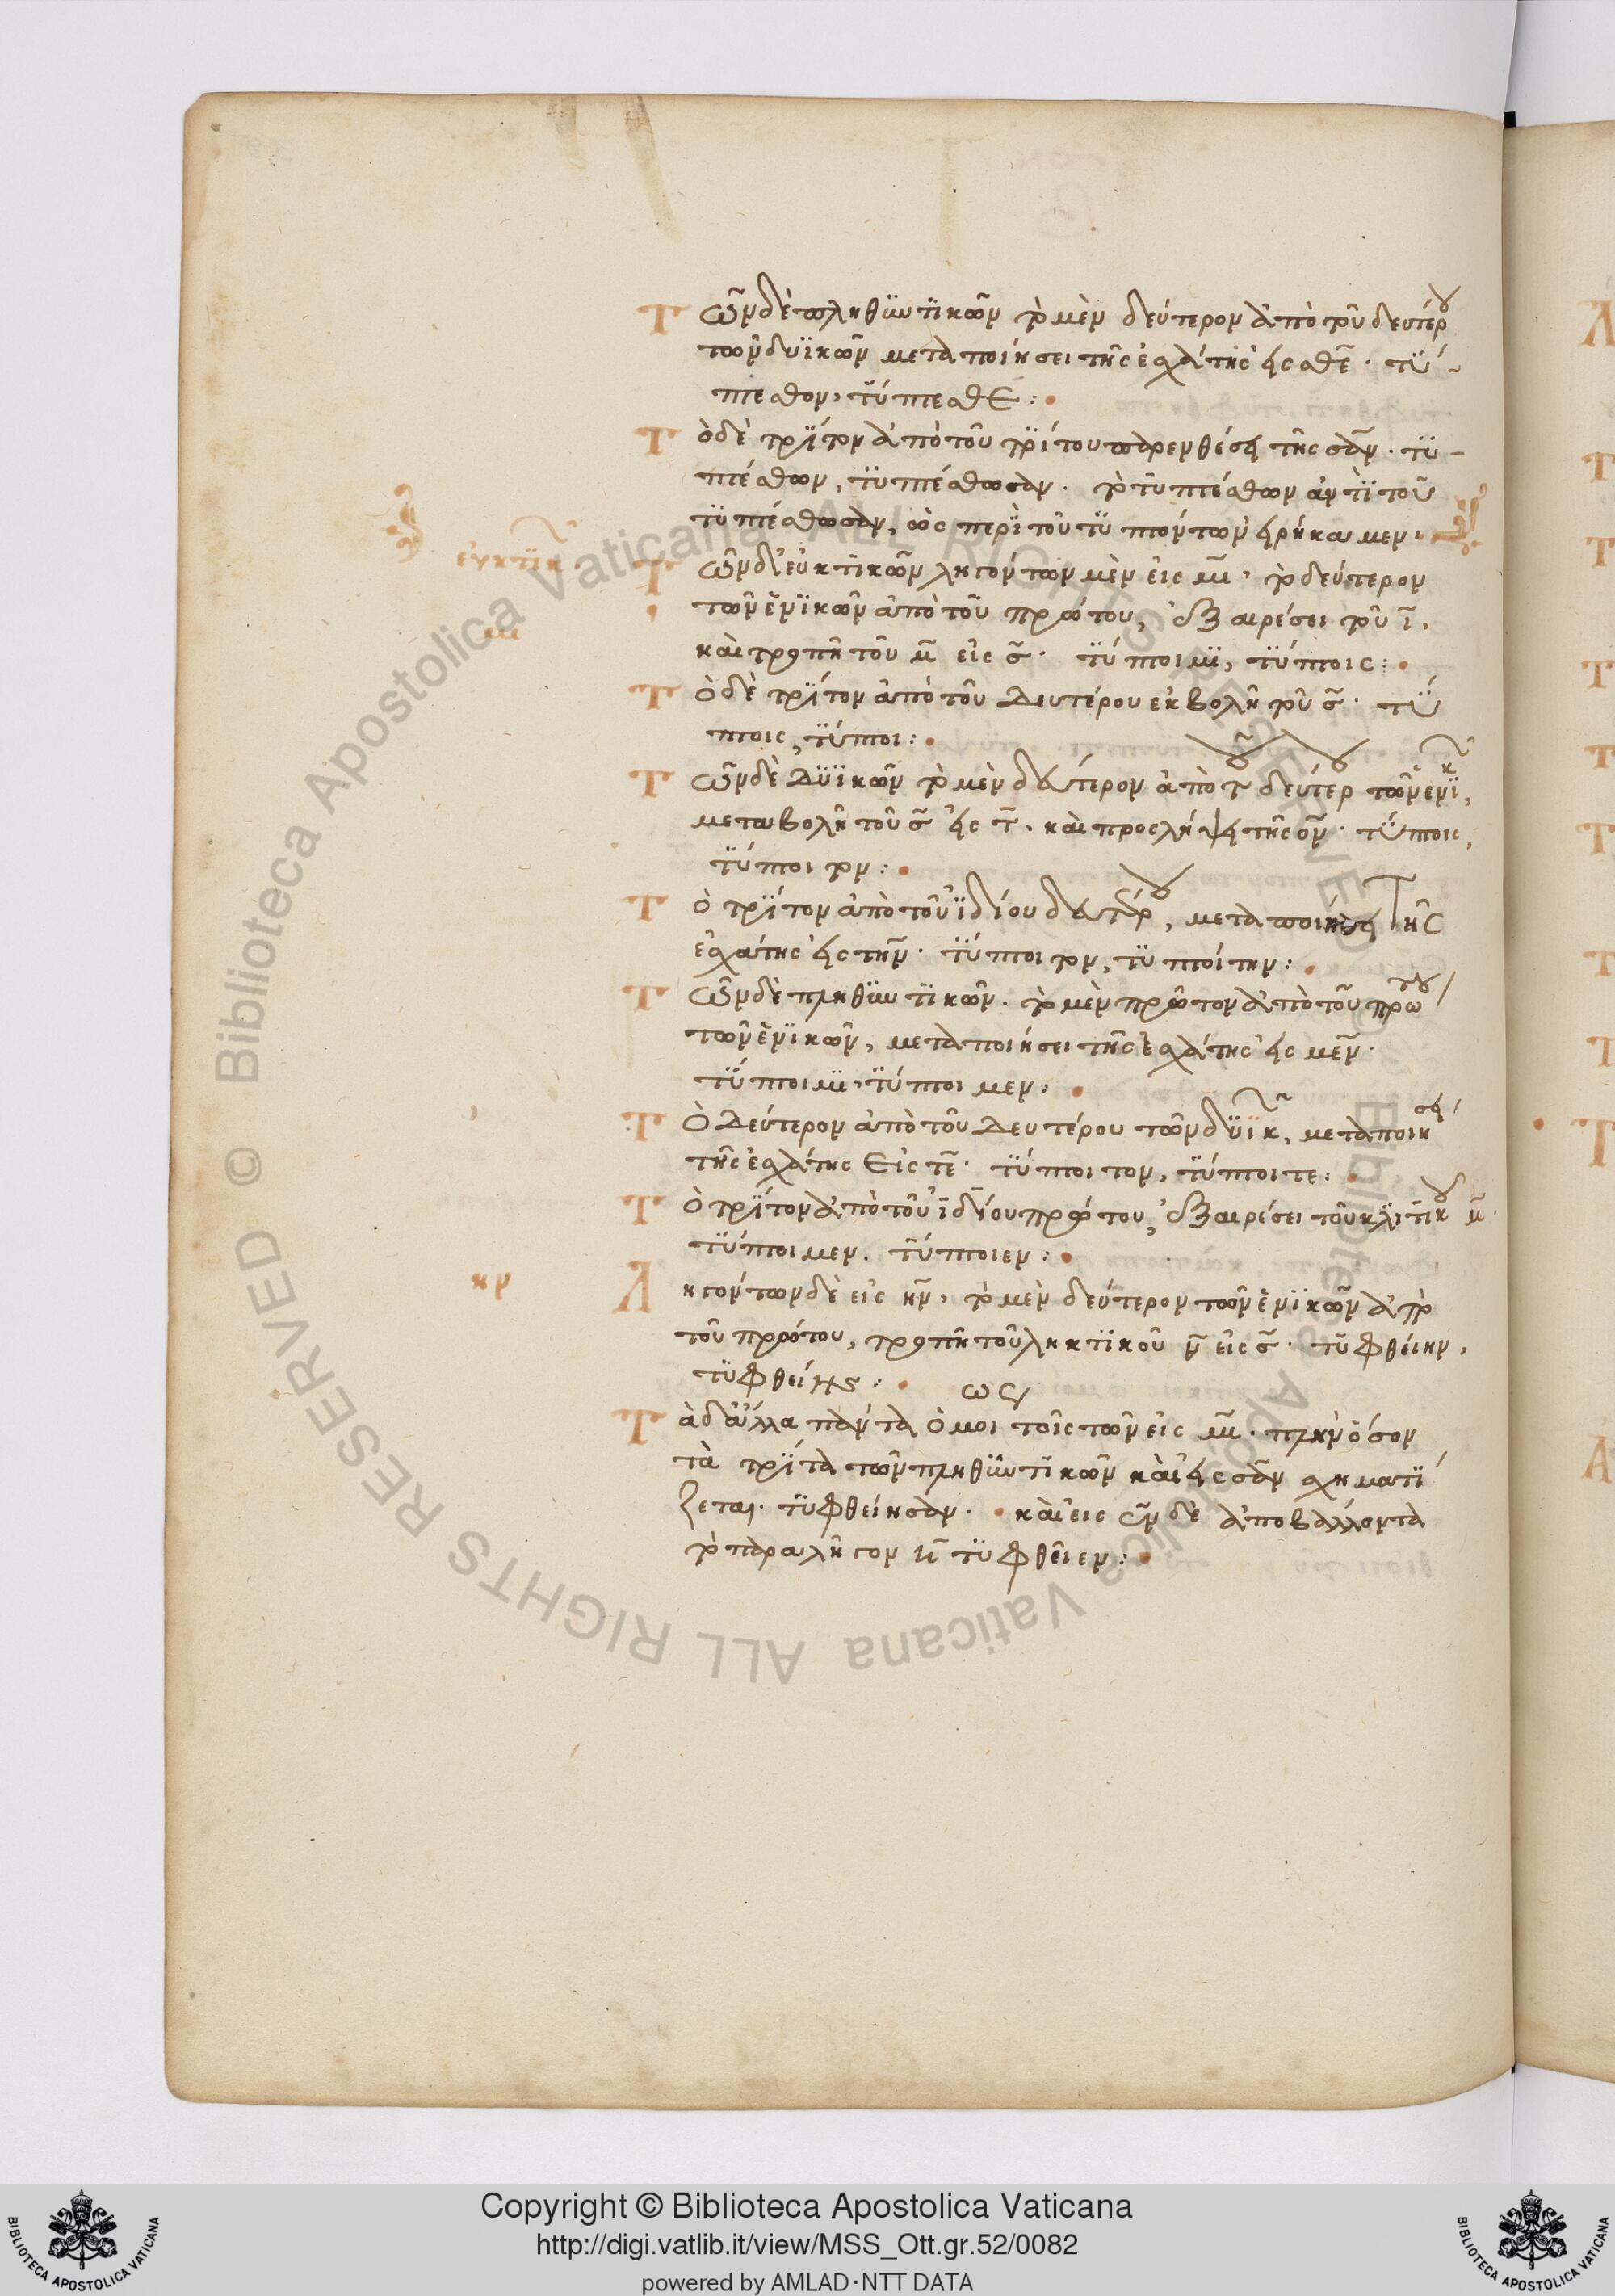 Τῶν δὲ πληθυντικῶν τὸ μὲν δεύτερον ἀπὸ τοῦ δευτέρου
τῶν δυϊκῶν μεταποιήσει τῆς ἐσχάτης εἰς σθε̄· τύ-
πτεσθον, τύπτεσθε:
Τὸ δὲ τρίτον ἀπὸ τοῦ τρίτου παρενθέσει τῆς σᾱν· τυ-
πτέσθων, τυπτέσθωσαν. τὸ τυπτέσθων ἀντὶ τοῦ
τυπτέσθωσαν, ὡς περὶ τοῦ τυπτόντων εἰρήκαμεν.
εὐκτικῶν
Τῶν δ' εὐκτικῶν ληγόντων μὲν εἰς μῑ, τὸ δεύτερον
τῶν ἑνικῶν ἀπὸ τοῦ πρώτου, ἐξαιρέσει τοῦ ῑ,
μι
καὶ τροπῆ τοῦ μ̄ εἰς σ̄· τύπτοιμι, τύπτοις:
Τὸ δὲ τρίτον ἀπὸ τοῦ δευτέρου ἐκβολῆ τοῦ σ̄· τύ
πτοις, τύπτοι:
Τῶν δὲ δυϊκῶν τὸ μὲν δεύτερον ἀπὸ τοῦ δευτέρου τῶν ἑνικῶν,
μεταβολῆ τοῦ σ̄ εἰς τ̄, καὶ προσλήψει τῆς ον̄· τύπτοις,
τύπτοιτον:
Τὸ τρίτον ἀπὸ τοῦ ἰδίου δευτέρου, μεταποιήσει τῆς
ἐσχάτης εἰς την̄· τύπτοιτον, τυπτοίτην:
Τῶν δὲ πληθυντικῶν. τὸ μὲν πρῶτον ἀπὸ τοῦ πρώτου
τῶν ἑνικῶν, μεταποιήσει τῆς ἐσχάτης εἰς μεν̄·
τύπτοιμι, τύπτοιμεν:
Τὸ δεύτερον ἀπὸ τοῦ δευτέρου τῶν δυϊκῶν, μεταποιήσει
τῆς ἐσχάτης εἰς τε̄· τύπτοιτον, τύπτοιτε:
Τὸ τρίτον ἀπὸ τοῦ ἰδίου πρώτου, ἐξαιρέσει τοῦ κλιτικοῦ μ̄·
τύπτοιμεν. τύπτοιεν:
ην
Ληγόντων δὲ εἰς ην̄, τὸ μὲν δεύτερον τῶν ἑνικῶν ἀπὸ
τοῦ πρώτου, τροπῆ τοῦ ληκτικοῦ ν̄ εἰς σ̄· τυφθείην,
τυφθείης:
Τὰ δ' ἄλλα πάντα ὁμοίως τοῖς τῶν εἰς μῑ· πλὴν ὅσον
τὰ τρίτα τῶν πληθυντικῶν καὶ εἰς σᾱν σχηματί
ζεται· τυφθείησαν· καὶ εἰς εν̄ δὲ ἀποβάλλοντα
τὸ παραλῆγον η̄ τυφθεῖεν:
Copyright © Biblioteca Apostolica Vaticana
http://digi.vatlib.it/view/MSS_Ott.gr.52/0082
powered by AMLAD·NTT DATA